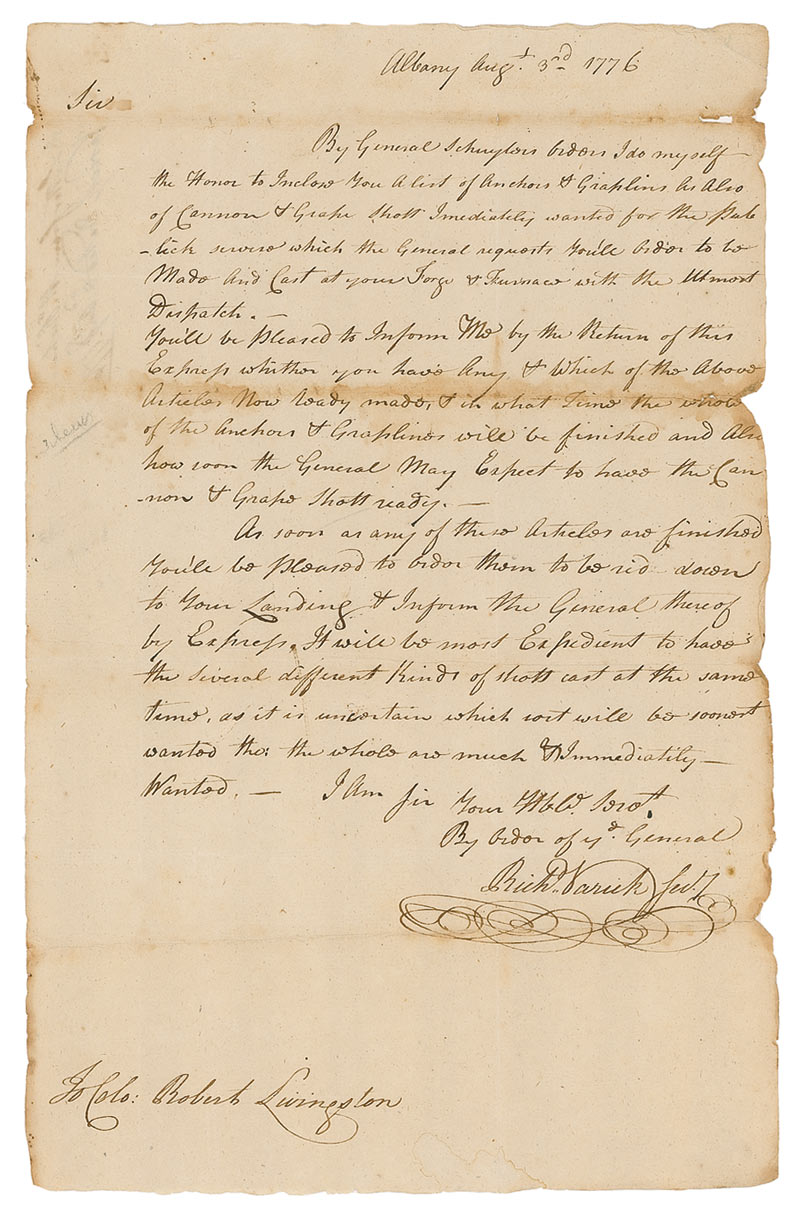 Albany Augt. 3rd 1776
Sir
By General Schuylers orders I do myself
the Honor to Inclose You A list of Anchors & Graplins As Also
of Cannon & Grape Shott Imediately wanted for the Pub
-lick service which the General requests You'll order to be
Made And Cast at your Forge & Furnace with the Utmost
Dispatch. —
You'll be pleased to Inform Me by the Return of this
Express whither you have Any & Which of the Above
Articles Now ready made, & in what Time the whole
of the Anchors & Graplines will be finished and Also
how soon the General May Expect to have the Can-
-non & Grape Shott ready. —
As soon as any of these Articles are finished
You'll be pleased to order them to be down
to Your Landing & Inform the General thereof
by Express. It will be most Expedient to have
the several different Kinds of shott cast at the same
time, as it is uncertain which sort will be soonest
wanted tho: the whole are much & Immediatily —
Wanted. — I Am Sir Your Hble. Servt.
By order of ye. General
Richd. Varick Secy
To Colo: Robert Livingston